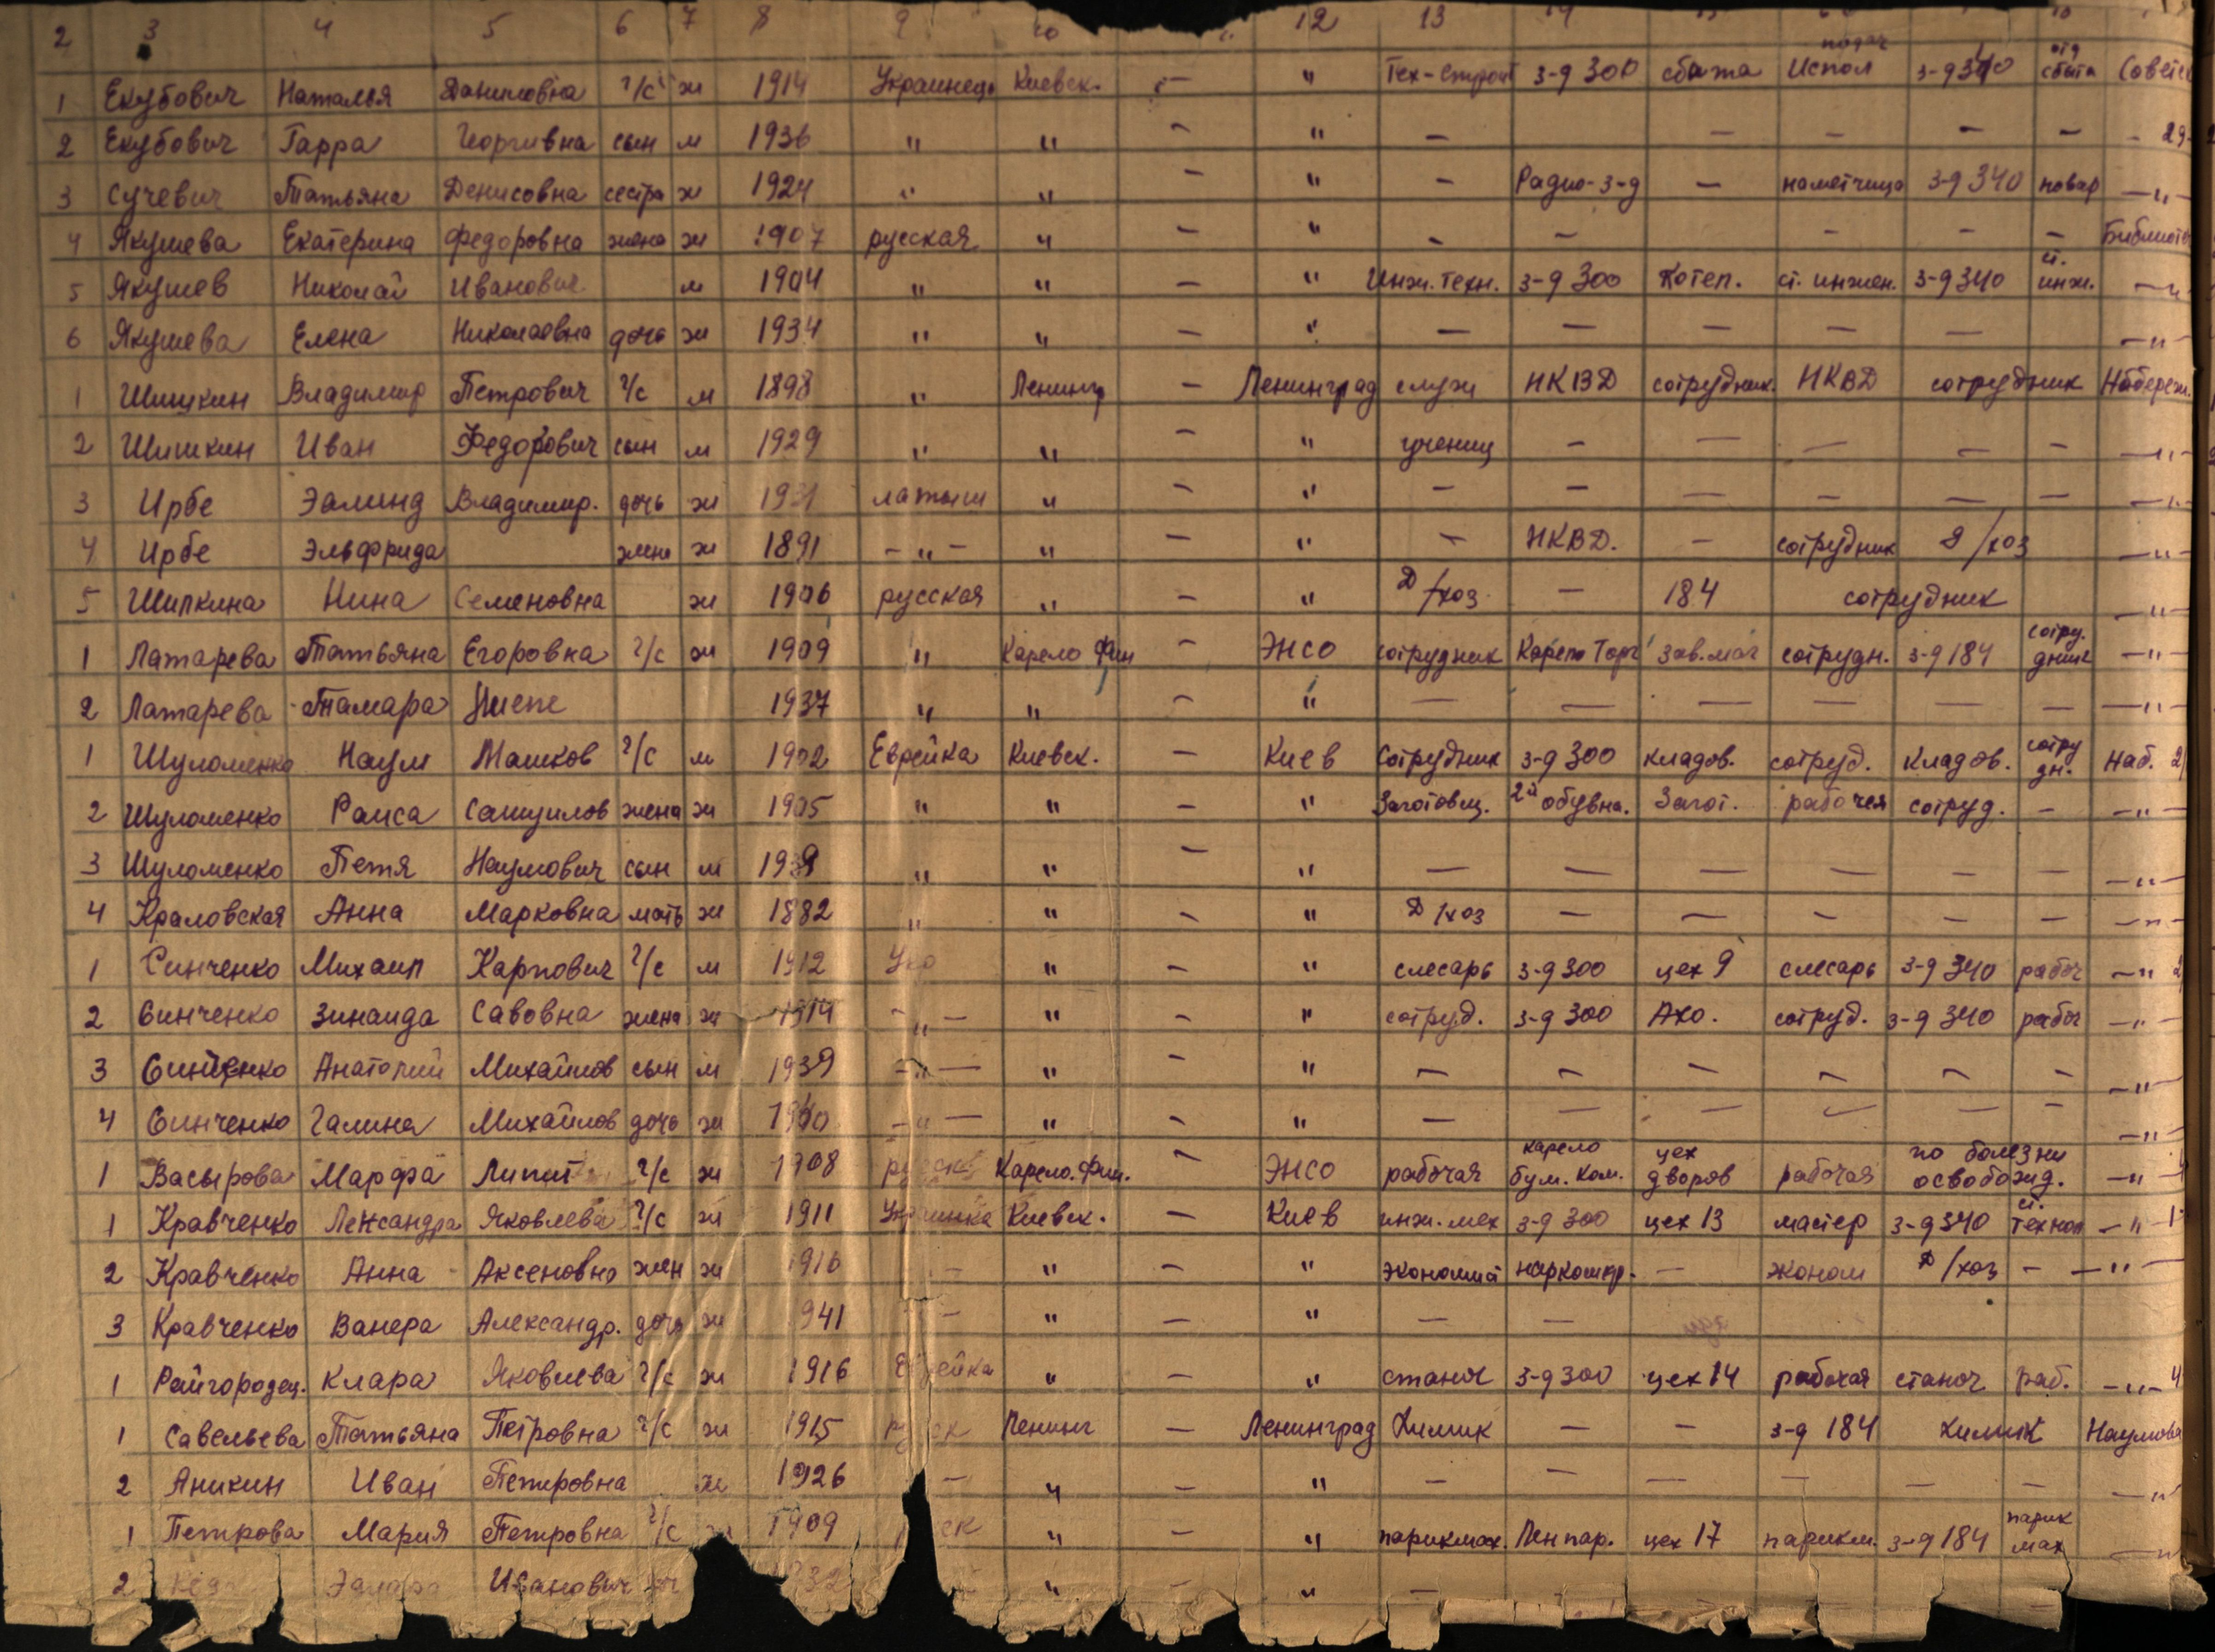 2 3 4 5 6 7 8 9 10 " 12 13 14
1 Екубович Наталья Даниловна г/с ж 1914 Украинец Киевск. — " Тех-строит з-д 300 сбыта Испол з-д 340 отд сбыта Советск
2 Екубович Гарра Георгивна сын м 1936 " " — " — — — — — - 29-
3 Сучевич Татьяна Денисовна сестра ж 1924 " " — " — Радио-з-д — наметчица з-д 340 повар — " —
4 Якушева Екатерина Федоровна жена ж 1907 русская " — " — — — — — Библиотеч
5 Якушев Николай Иванович м 1904 " " — " Инж. техн. з-д 300 Котел. ст. инжен. з-д 340 ст. инж. — " —
6 Якушева Елена Николаевна дочь ж 1934 " " — " — — — — — — " —
1 Шишкин Владимир Петрович г/с м 1898 " Ленингр — Ленинград служ НКВД сотрудник НКВД сотрудник Набережн.
2 Шишкин Иван Федорович сын м 1929 " " — " учениц — — — — — — " —
3 Ирбе Эалинд Владимир. дочь ж 1931 латыш " — " — — — — — — — " —
4 Ирбе Эльфрида жена ж 1891 — " — " — " — НКВД. — сотрудник Д/хоз — " —
5 Шипкина Нина Семеновна ж 1906 русская " — " Д/хоз — 184 сотрудник — " —
1 Латарева Татьяна Егоровна г/с ж 1909 " Карело Фин — ЭНСО сотрудник Карело Торг Зав. маг сотрудн. з-д 184 сотру. дник — " —
2 Латарева Тамара 1937 " " — " — — — — — — — " —
1 Шуломенко Наум Машков г/с м 1902 Еврейка Киевск. — Киев Сотрудник з-д 300 кладов. сотруд. кладов. сотру дн. Наб.
2 Шуломенко Раиса Самуилов жена ж 1905 " " — " Заготовщ. 2й обувна. Загот. рабочея сотруд. — — " —
3 Шуломенко Петя Наумович сын м 1939 " " — " — — — — — — — " —
4 Краловская Анна Марковна мать ж 1882 " " — " Д/хоз — — — — — — " —
1 Синченко Михаил Карпович г/с м 1912 Ук " — " слесарь з-д 300 цех 9 слесарь з-д 340 рабоч — "
2 Синченко Зинаида Савовна жена ж 1914 — " — " — " сотруд. з-д 300 АХО. сотруд. з-д 340 рабоч — " —
3 Синченко Анатолий Михайлов сын м 1939 — " — " — " — — — — — — — " —
4 Синченко Галина Михайлов дочь ж 1940 — " — " — " — — — — — — — " —
1 Васырова Марфа г/с ж 1908 русск Карело. Фин. — ЭНСО рабочая карело бум. ком. цех дворов рабочая по болезни освобожд. — "
1 Кравченко Лександра Яковлева г/с ж 1911 Украинка Киевск. — Киев инж. мех з-д 300 цех 13 мастер з-д 340 ст. технол — "
2 Кравченко Анна Аксеновна жен ж 1916 — " — " экономист — эконом Д/хоз — — " —
3 Кравченко Валера Александр. дочь ж 941 — " — " — —
1 Райгородец. Клара Яковлева г/с ж 1916 Еврейка " — " станоч з-д 300 цех 14 рабочая станоч раб. — " — 4
1 Савельева Татьяна Петровна г/с ж 1915 Ленинг — Ленинград Химик — — з-д 184 химик Наумова
2 Аникин Иван Петровна ж 1926 — " — " — — — — — — — "
1 Петрова Мария Петровна г/с ж 1909 " — " парикмах. Лен пар. цех 17 парикм. з-д 184 парик мах — "
2 Иванович " — " —